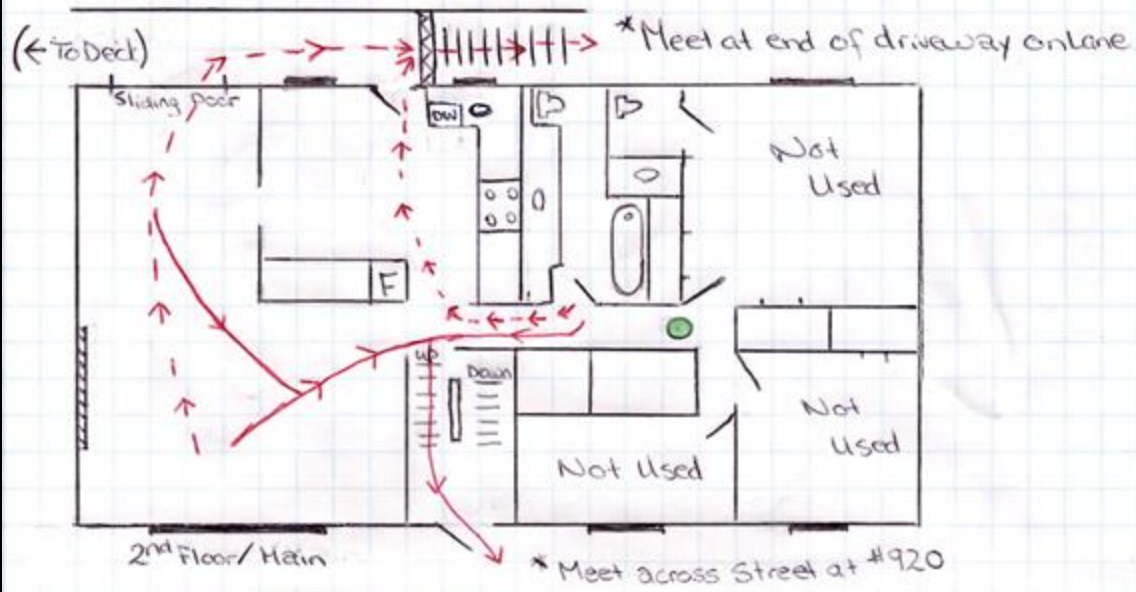 (← To Deck)
*Meet at end of driveway on Lane
Sliding Door
DW
Not
Used
F
UP
Down
Not
Used
Not Used
2nd Floor/Main
*Meet across Street at #920